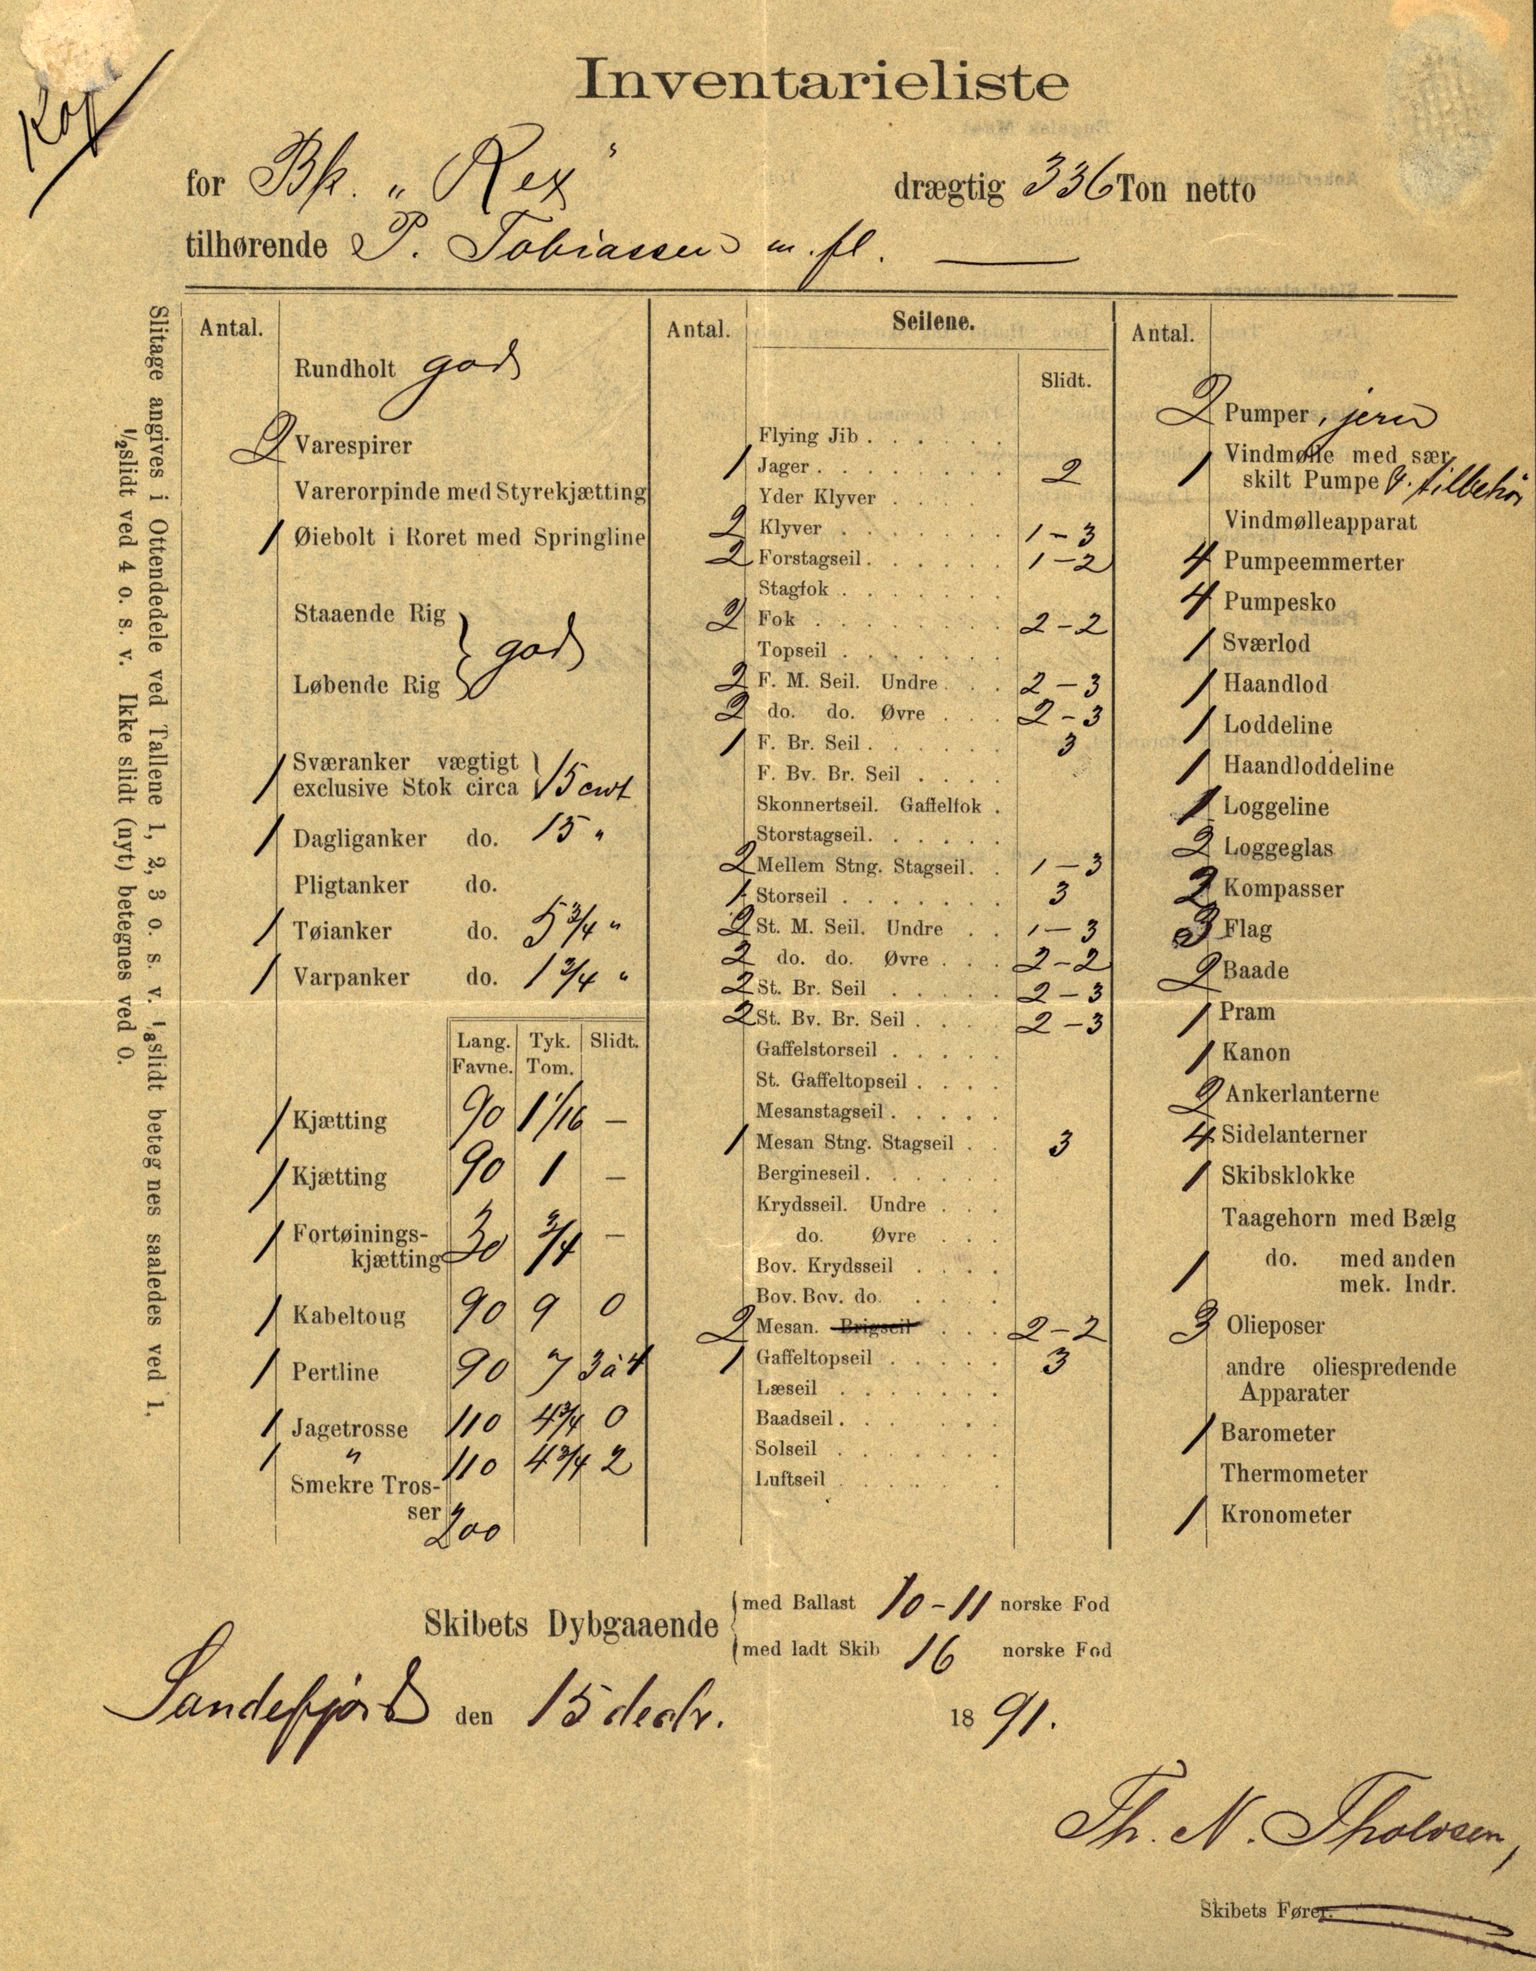 Inventarieliste
for Bk. „Rex" drægtig 336 Ton netto
tilhørende P. Tobiassen m. fl.
Slitage angives i Ottendedele ved Tallene 1, 2, 3 o. s. v. 1/8slidt beteg nes saaledes ved 1,
1/2slidt ved 4 o. s. v. Ikke slidt (nyt) betegnes ved 0.
Antal.
Rundholt god
2 Varespirer
Varerorpinde med Styrekjætting
1 Øiebolt i Roret med Springline
Staaende Rig
Løbende Rig } god
1 Sværanker vægtigt
exclusive Stok circa } 15 cwt
1 Dagliganker do. 15 "
Pligtanker do.
1 Tøianker do. 5 3/4 "
1 Varpanker do. 1 3/4 "
Lang. Tyk. Slidt.
Favne. Tom.
1 Kjætting 90 1 1/16 —
1 Kjætting 90 1 —
1 Fortøinings-
kjætting 30 3/4 —
1 Kabeltoug 90 9 0
1 Pertline 90 7 3 à 4
1 Jagetrosse 110 4 3/4 0
1 " 110 4 3/4 2
Smekre Tros-
ser 200
Antal. Seilene.
Slidt.
Flying Jib . . . . .
1 Jager . . . . . . . 2
Yder Klyver . . . .
2 Klyver . . . . . . 1 – 3
2 Forstagseil . . . . . . 1 – 2
Stagfok . . . . . .
2 Fok . . . . . . . 2 – 2
Topseil . . . . . .
2 F. M. Seil. Undre . . . 2 – 3
2 do. do. Øvre . . . 2 – 3
1 F. Br. Seil . . . . . 3
F. Bv. Br. Seil . . . .
Skonnertseil. Gaffelfok .
Storstagseil . . . . .
2 Mellem Stng. Stagseil . . 1 – 3
1 Storseil . . . . . . 3
2 St. M. Seil. Undre . . 1 – 3
2 do. do. Øvre . . . 2 – 2
2 St. Br. Seil . . . . . 2 – 3
2 St. Bv. Br. Seil . . . . 2 – 3
Gaffelstorseil . . . . .
St. Gaffeltopseil . . . .
Mesanstagseil . . . . .
1 Mesan Stng. Stagseil . . 3
Bergineseil . . . . . .
Krydsseil. Undre . . .
do. Øvre . . .
Bov. Krydsseil . . . .
Bov. Bov. do. . . .
2 Mesan. Brigseil . . . 2 – 2
1 Gaffeltopseil . . . . . 3
Læseil . . . . . .
Baadseil . . . . . .
Solseil . . . . . .
Luftseil . . . . . .
Antal.
2 Pumper, jern
1 Vindmølle med sær
skilt Pumpe & tilbehør
Vindmølleapparat
4 Pumpeemmerter
4 Pumpesko
1 Sværlod
1 Haandlod
1 Loddeline
1 Haandloddeline
1 Loggeline
2 Loggeglas
2 Kompasser
3 Flag
2 Baade
1 Pram
1 Kanon
2 Ankerlanterne
4 Sidelanterner
1 Skibsklokke
Taagehorn med Bælg
1 do. med anden
mek. Indr.
3 Olieposer
andre oliespredende
Apparater
1 Barometer
Thermometer
1 Kronometer
Skibets Dybgaaende
med Ballast 10 – 11 norske Fod
med ladt Skib 16 norske Fod
Sandefjord den 15 decbr. 1891.
Th. N. Tholvsen,
Skibets Fører.